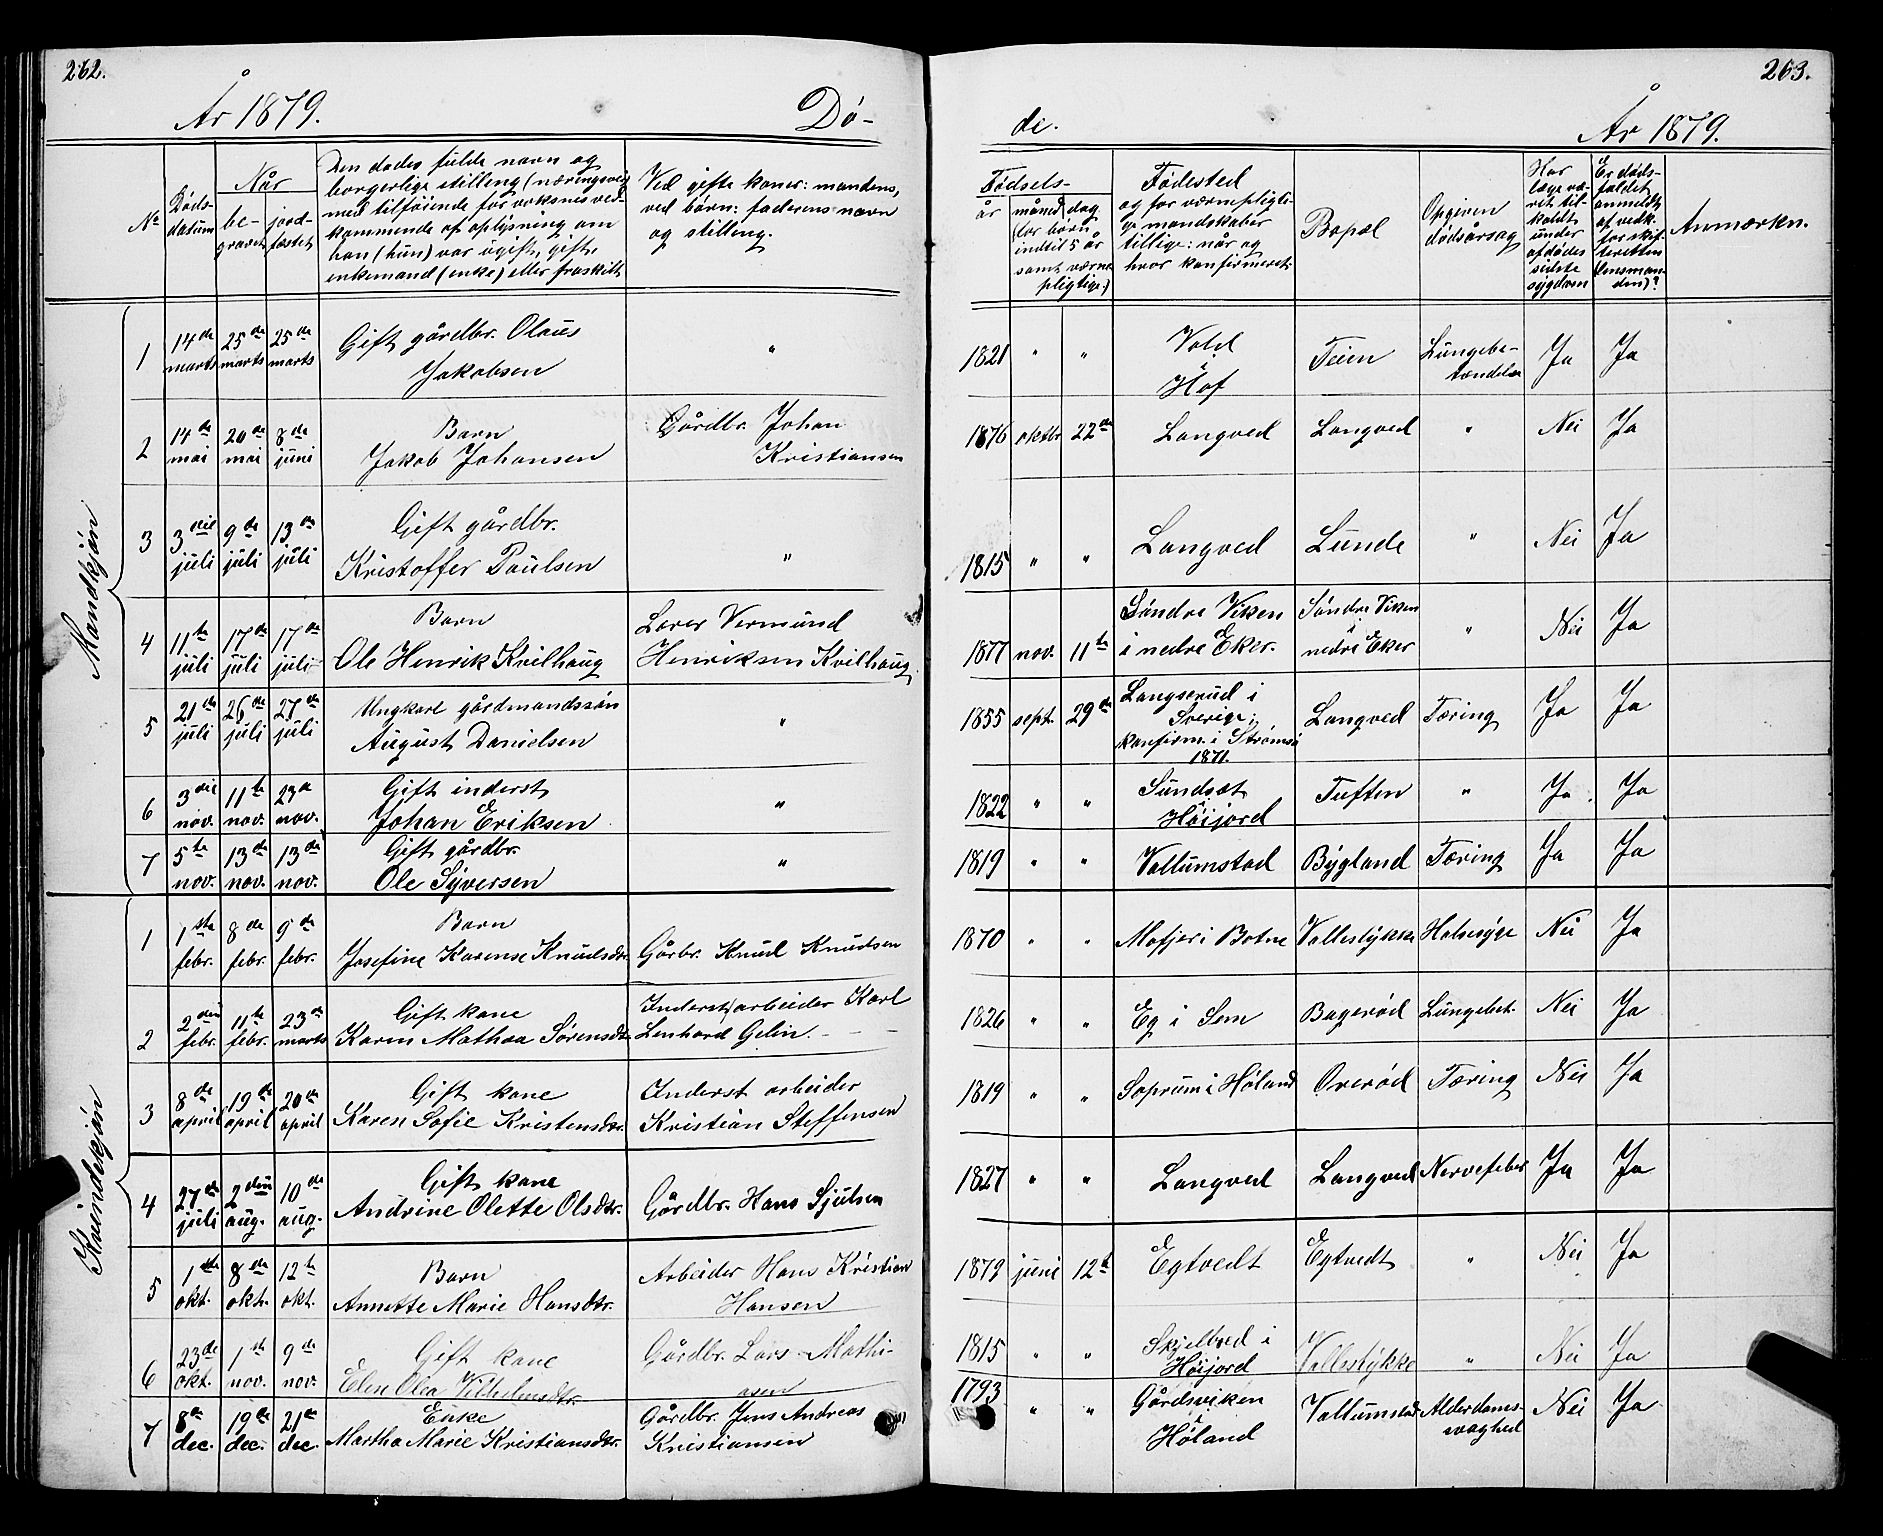 262.
År 1879.
Dö-
No
Döds-
datum
Når
be-
gravet
jord-
fæstet
Den dödes fulde navn og
borgerlige stilling (næringsvei)
med tilföiende for voksnes ved-
kommende af oplysning om
han (hun) var ugift, gift,
enkemand (enke) eller fraskilt
Ved gifte koner: mandens,
ved börn: faderens navn
og stilling.
Mandkjön
1 14de marts 25de marts 25de marts Gift gårdbr. Olaus
Jakobsen "
2 14de mai 20de mai 8de juni Barn
Jakob Johansen
Gårdbr. Johan
Kristiansen
3 3die juli 9de juli 13de juli Gift gårdbr.
Kristoffer Paulsen "
4 11te juli 17de juli 17de juli Barn
Ole Henrik Kvilhaug
Lærer Vermund
Henriksen Kvilhaug
5 21de juli 26de juli 27de juli Ungkarl gårdmandssön
August Danielsen "
6 3die nov. 11te nov. 23de nov. Gift inderst
Johan Eriksen "
7 5te nov. 13de nov. 13de nov. Gift gårdbr.
Ole Syversen "
Kvindekjön
1 1ste febr. 8de febr. 9de febr. Barn
Josefine Karense Knudsdtr.
Gårbr. Knud Knudsen
2 2den febr. 11te febr. 23de marts Gift kone
Karen Mathea Sörensdtr.
Inderst arbeider Karl
Lenhard Gelin.
3 8de april 19de april 20de april Gift kone
Karen Sofie Kristensdtr.
Inderst arbeider
Kristian Steffensen
4 27de juli 2den aug. 10de aug. Gift kone
Andrine Olette Olsdtr.
Gårdbr. Hans Sjulsen
5 1ste okt. 8de okt. 12te okt. Barn
Annette Marie Hansdtr.
Arbeider Hans Kristian
Hansen
6 23de okt. 1ste nov. 9de nov. Gift kone
Elen Olea Vilhelmsdtr.
Gårdbr. Lars Mathi-
asen
7 8de dec. 19de dec. 21de dec. Enke
Martha Marie Kristiansdtr.
Gårdbr. Jens Andreas
Kristiansen
263.
de.
År 1879.
Födsels-
år
måned
dag
(for börn
indtil 5 år
samt værne-
pligtige.)
Födested
og for værnepligti-
ge mandskaber
tillige: når og
hvor konfirmeret.
Bopæl
Opgiven
dödsårsag
Har
læge væ-
ret til-
kaldt
under
afdödes
sidste
sygdom
Er döds-
faldet
anmeldt
af vedk.
for skif-
teretten
(lensman-
den)?
Anmærkn.
1821 " " Vold
i
Hof
Teien Lungebe-
tændelse Ja Ja
1876 oktbr 22de Langved Langved " Nei Ja
1815 " " Langved Lunde " Nei Ja
1877 nov. 11te Söndre Viken
i nedre Eker.
Söndre Viken
i
nedre Eker " Nei Ja
1855 sept. 29de Langserud i
Sverige;
konfirm. i Strömsö
1871.
Langved Tæring Ja Ja
1822 " " Sundsæt
Höijord Tuften " Ja Ja
1819 " " Vallumstad Bygland Tæring Ja Ja
1870 " " Mofjer i Botne Vallestykke Halsesyge Nei Ja
1826 " " Eg i Sem Bageröd Lungebet. Nei Ja
1819 " " Soprum i Höland Overöd Tæring Nei Ja
1827 " " Langved Langved Nervefeber Ja Ja
1879 juni 12te Egtvedt Egtvedt " Nei Ja
1815 " " Skjelbred i
Höijord Vallestykke " Nei Ja
1793 " " Gårdsviken
i
Höland Vallumstad Alderdoms-
svaghed Nei Ja